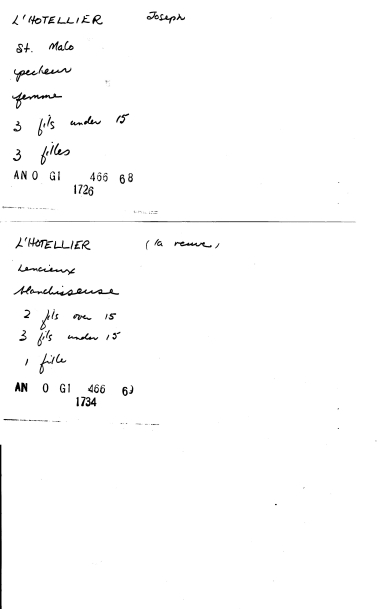 L'HOTELLIER Joseph
St. Malo
pecheur
femme
3 fils under 15
3 filles
AN O GI 466 68
1726
L'HOTELLIER (la veuve)
Lancieux
blanchisseuse
2 fils over 15
3 fils under 15
1 fille
AN O GI 466 69
1734